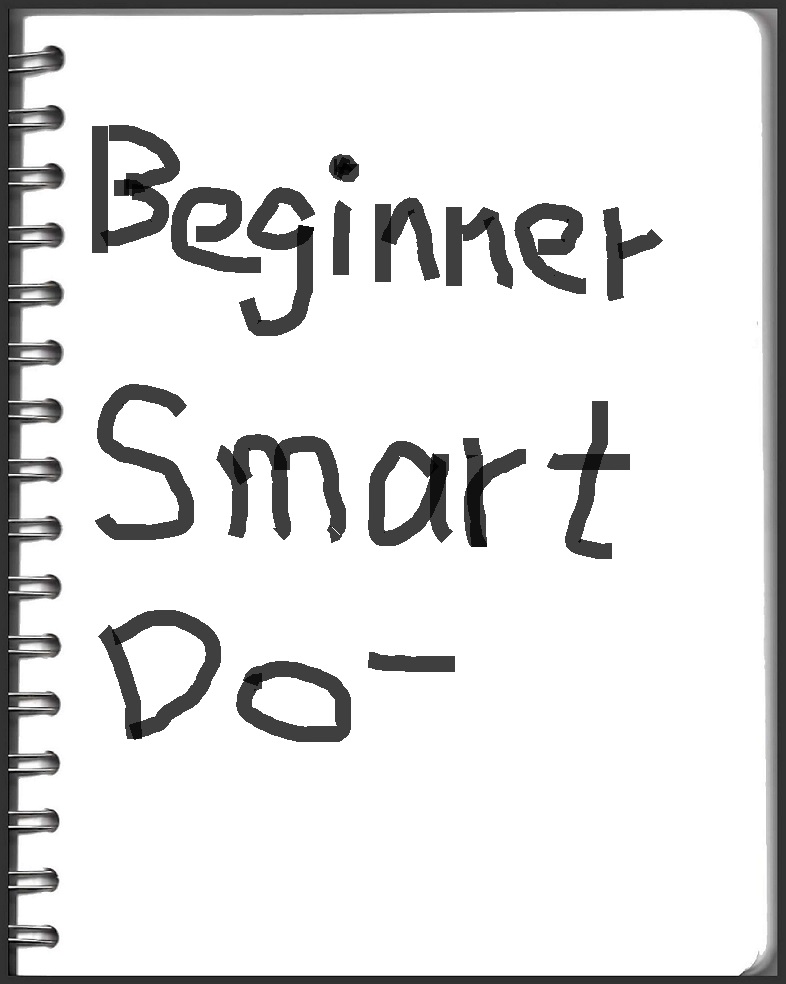 Beginner
Smart
Do-